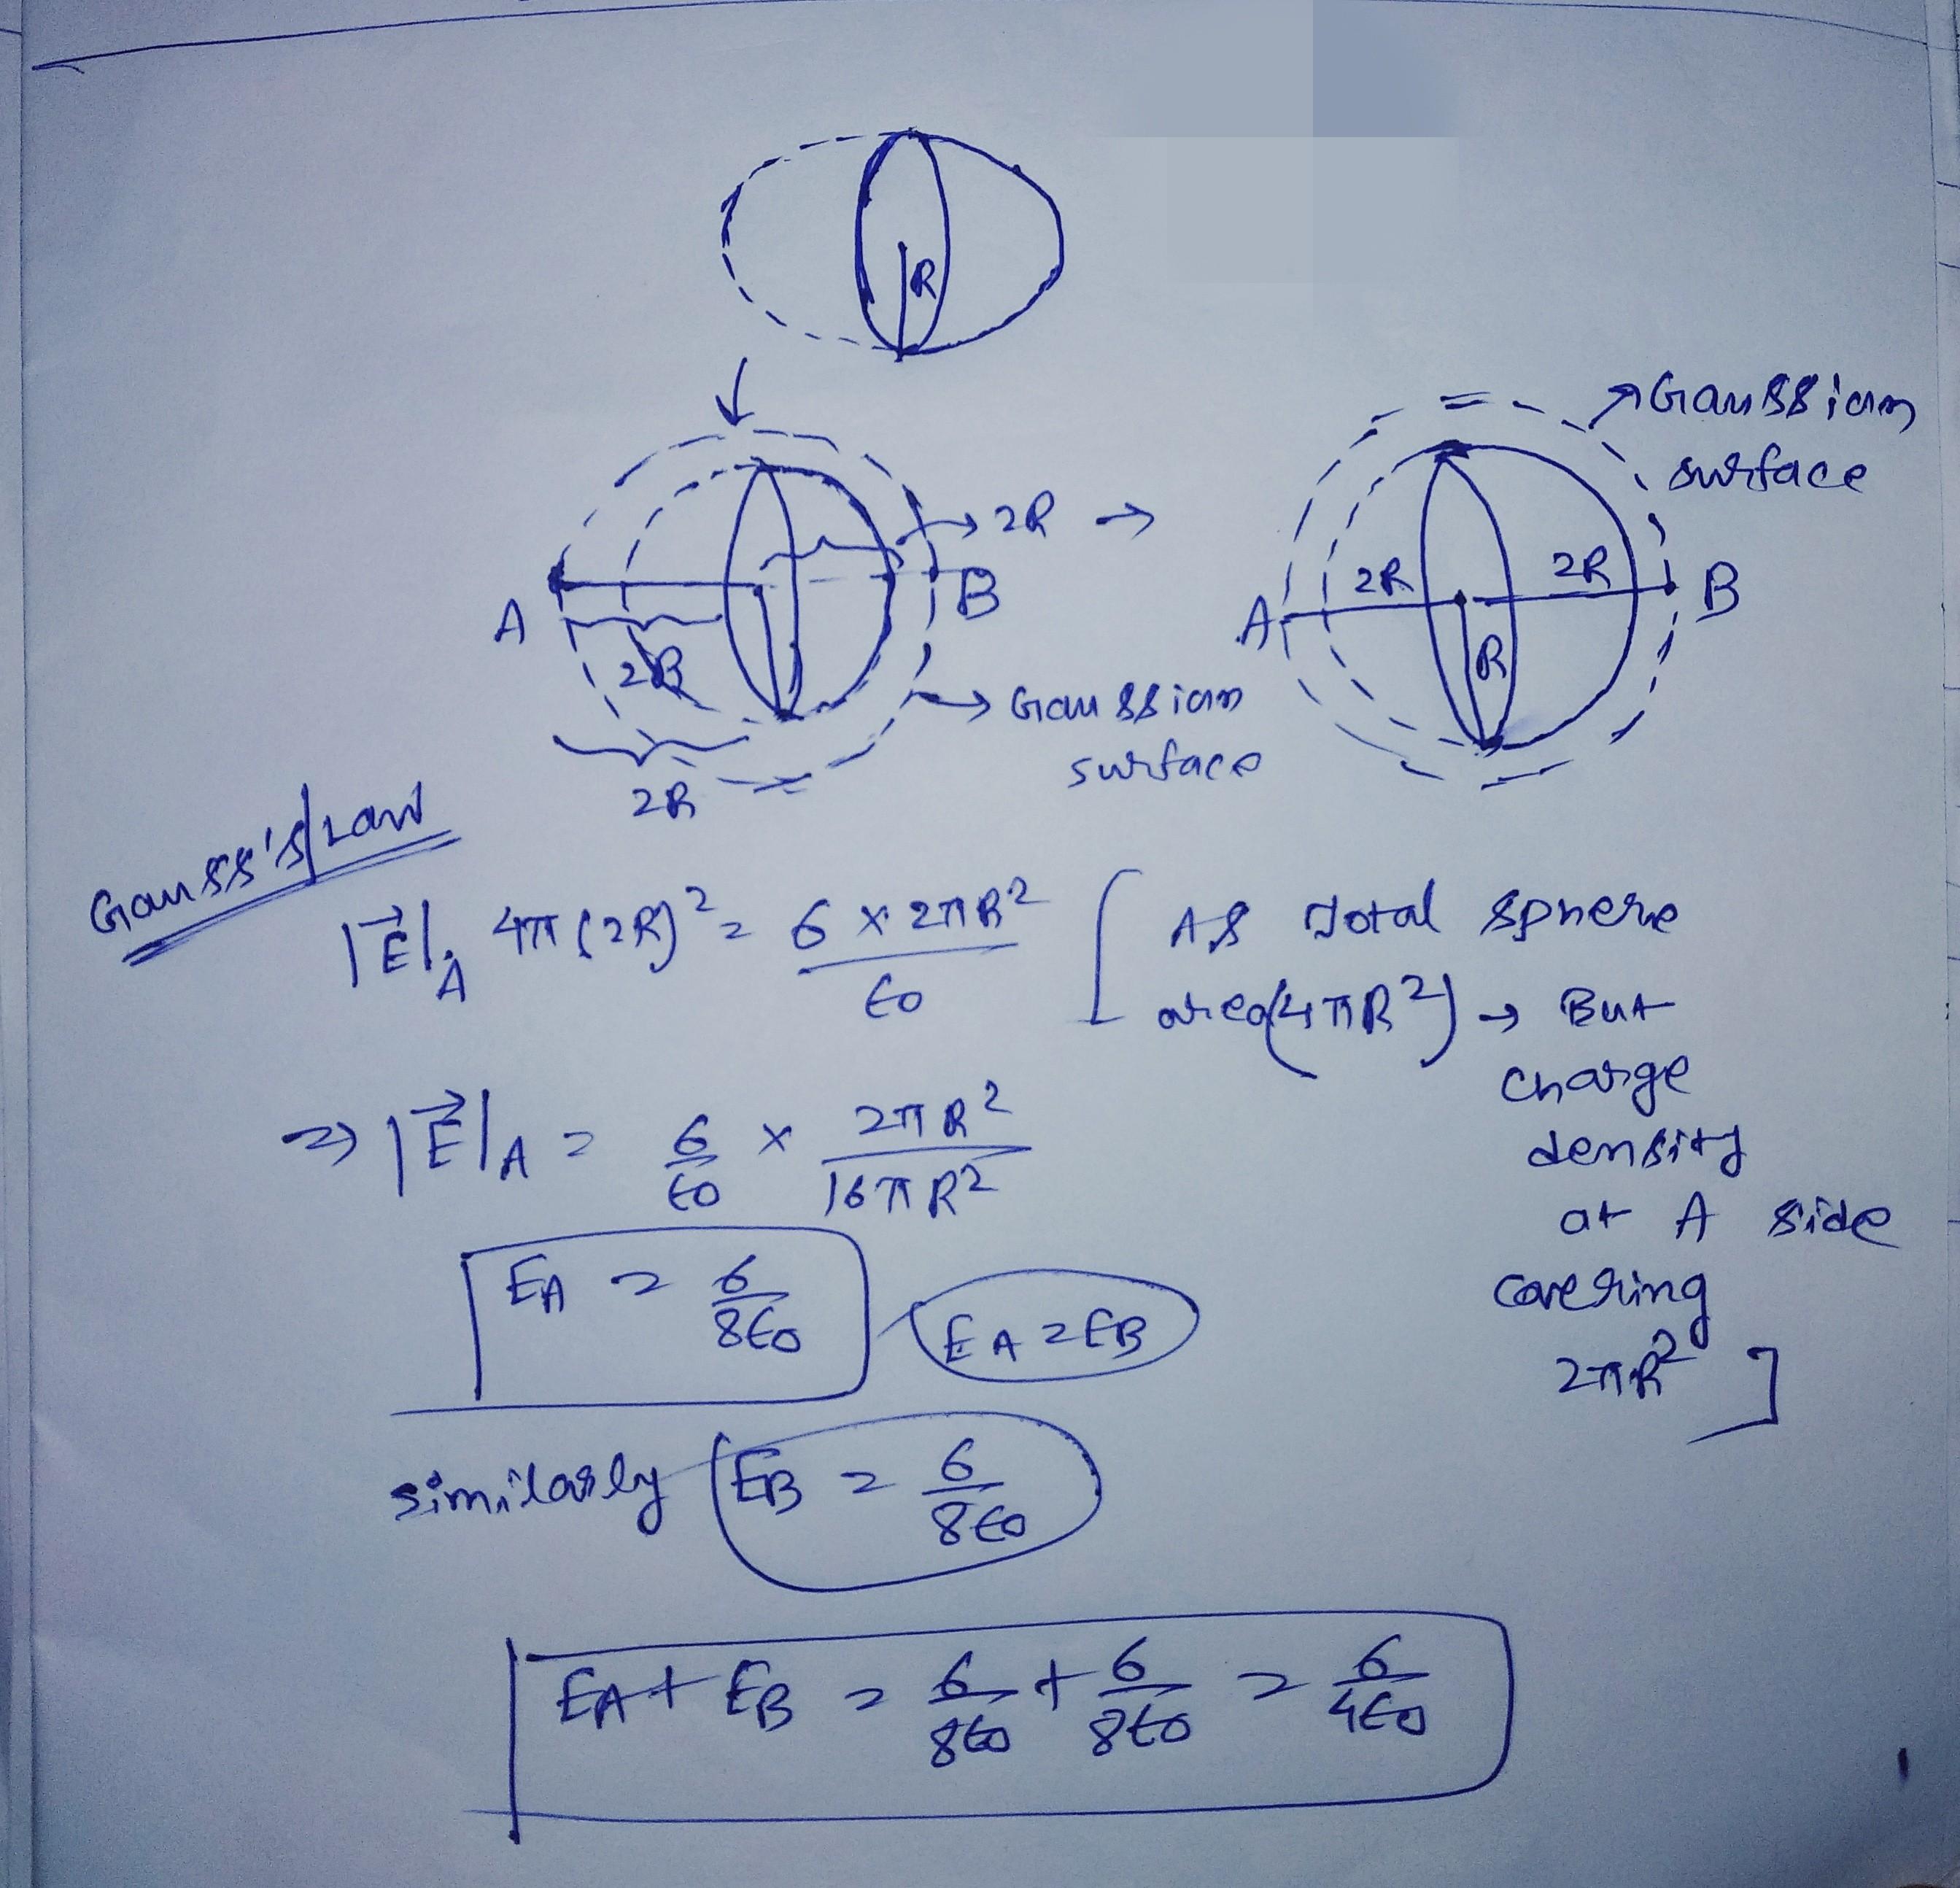 R
→ Gaussian
surface
→ 2R →
A
B
2R
2R
→ Gaussian
surface
A
2R
2R
B
R
Gauss's Law
|E⃗|_A 4π(2R)² = σ × 2πR² / ε₀ [ As Total sphere
area(4πR²) → But
charge
density
at A side
covering
2πR² ]
⇒ |E⃗|_A = σ/ε₀ × 2πR² / 16πR²
E_A = σ/8ε₀
E_A = E_B
similarly E_B = σ/8ε₀
E_A + E_B = σ/8ε₀ + σ/8ε₀ = σ/4ε₀